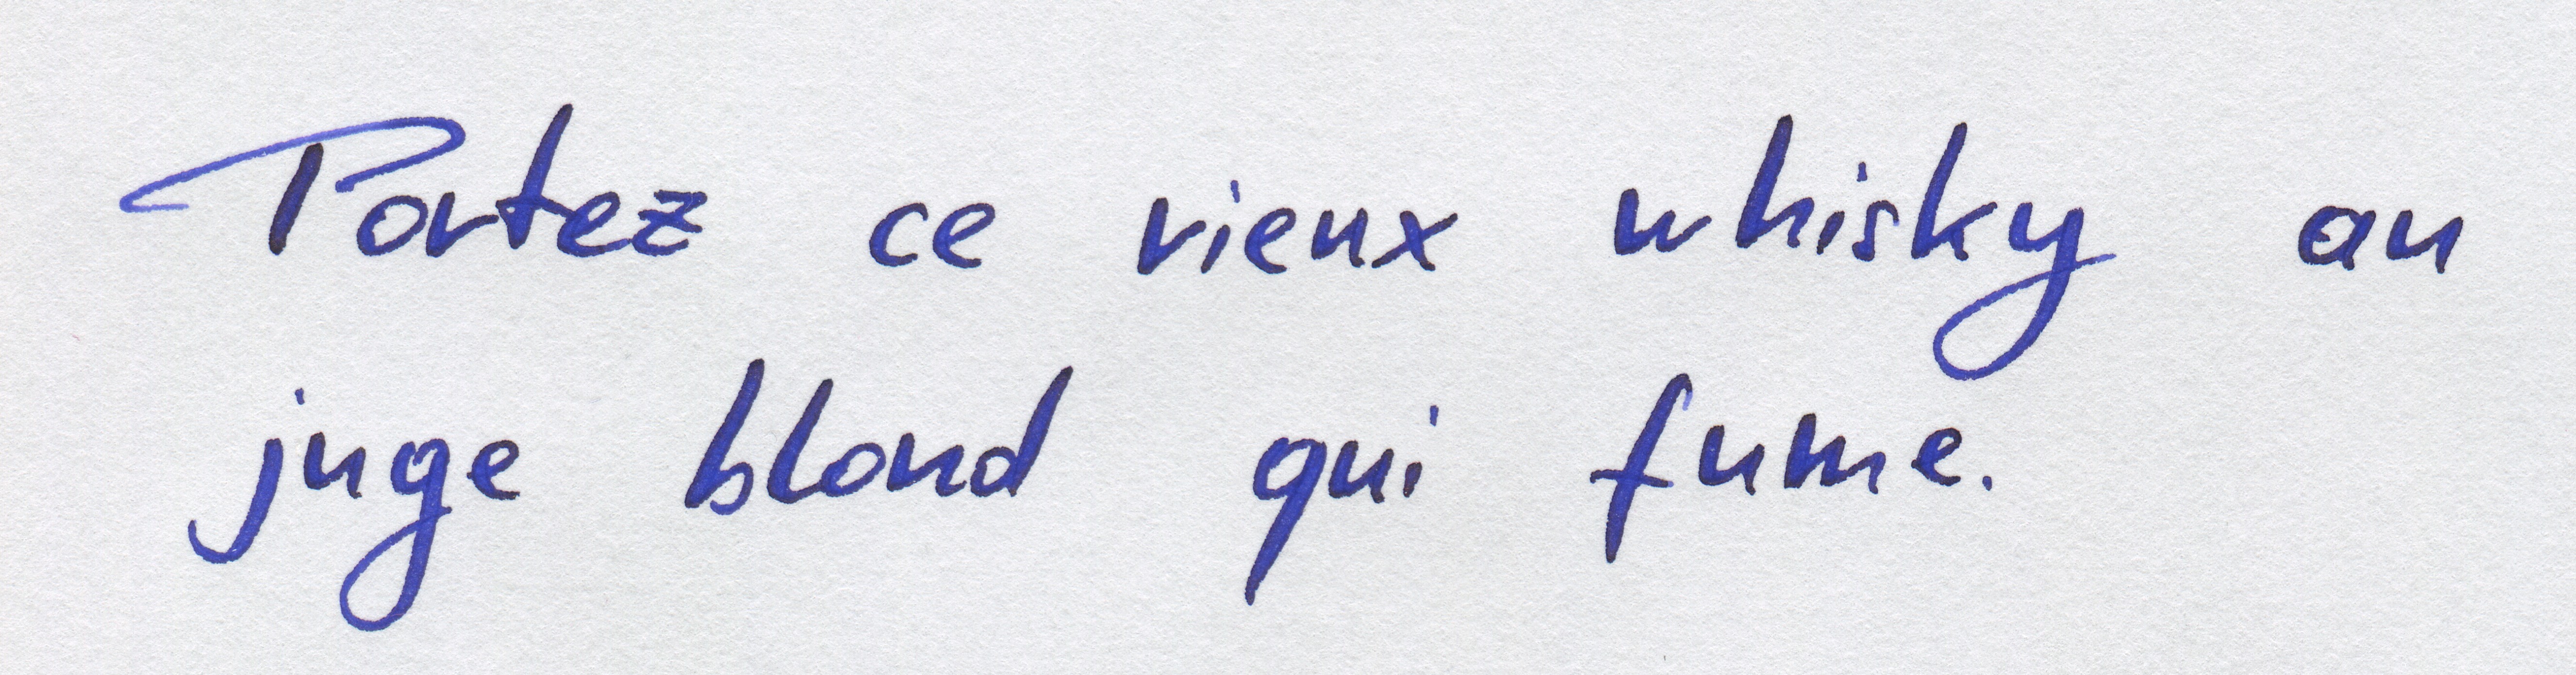 Portez ce vieux whisky au
juge blond qui fume.